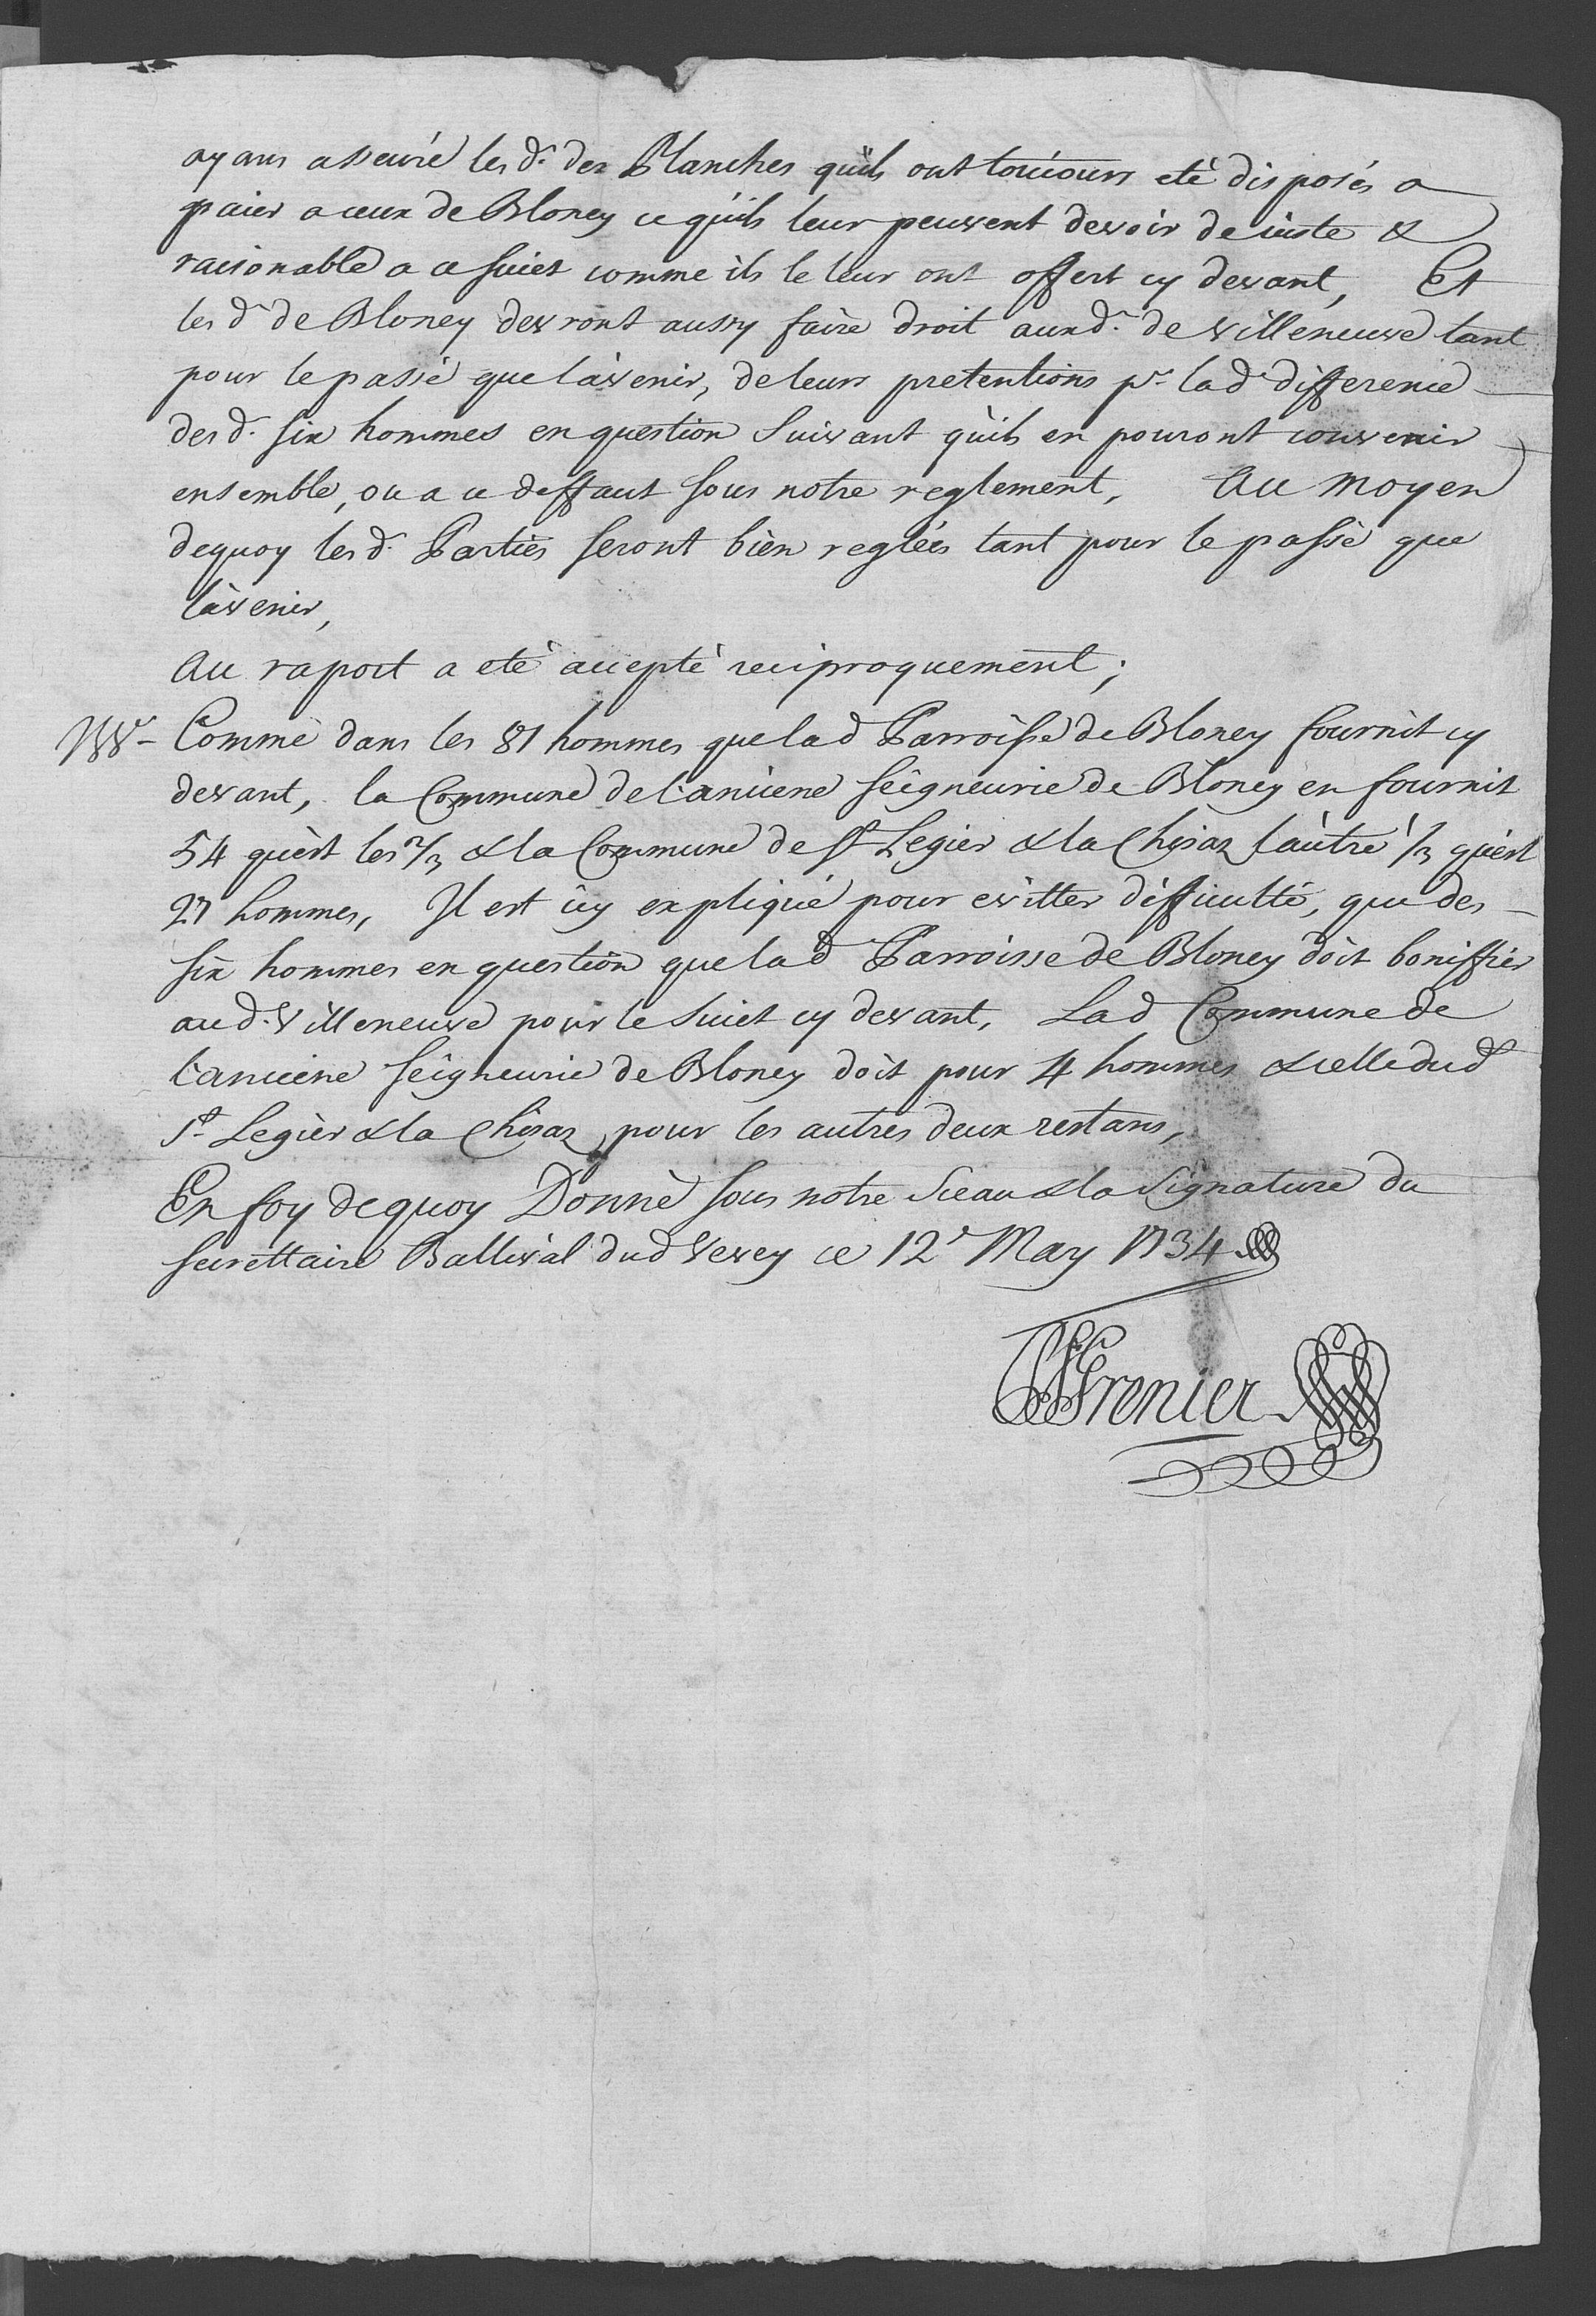 ayans asseuré les d.ˢ des Planches quils ont toûiours eté disposés a
paier a ceux de Bloney ce quils leur peuvent devoir de iuste &
raisonable a ce suiet comme ils le leur ont offert cy devant, Et
les d.ˢ de Bloney devront aussy faire droit aux d.ˢ de Villeneuve tant
pour le passé que làvenir, de leurs pretentions pʳ. lad.ᵉ difference
des d.ˢ six hommes en question suivant quils en pouront convenir
ensemble, ou a ce deffaut sous notre reglement, Au moyen
dequoy les d.ˢ Parties seront bien reglées tant pour le passé que
làvenir,
Au raport a eté accepté reciproquement;
Comme dans les 81 hommes que lad Parroisse de Bloney fournit cy
devant, la Commune de l'anciene seigneurie de Bloney en fournit
54 quest les 2/3 & la Commune de Sᵗ Legier & la Chisaz làutre 1/3 quest
27 hommes, Il est icy expliqué pour evitter difficulté, que des
six hommes en question que lad Parroisse de Bloney doit boniffier
aud. Villeneuve pour le suiet cy devant, Lad Commune de
l'anciene seigneurie de Bloney doit pour 4 hommes & celle dud
Sᵗ Legier & la Chisaz pour les autres deux restans,
En foy dequoy Donné sous notre Sceau & la Signature du
secrettaire Ballival dud Vevey ce 12ᵉ May 1734
Grenier